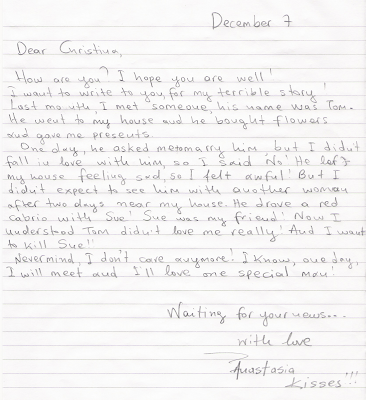 December 7
Dear Christina,
How are you? I hope you are well!
I want to write to you, for my terrible story!
Last mouth I met someone, his name was Tom.
He went to my house and he bought flowers
and gave me presents.
One day, he asked me to marry him but I didn't
fall in love with him, so I said No! He left
my house feeling sad, so I felt awful! But I
didn't expect to see him with another woman
after two days near my house. He drove a red
cabrio with Sue! Sue was my friend! Now I
understood Tom didn't love me really! And I want
to kill Sue!!
Nevermind, I don't care anymore! I know, one day,
I will meet and I'll love one special man!
Waiting for your news...
with love
Anastasia
Kisses!!!